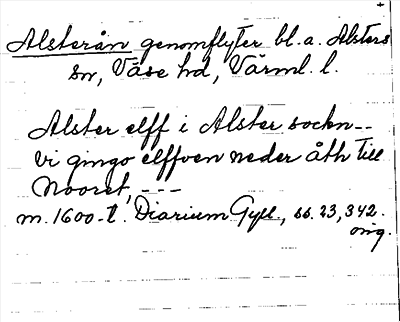 Alsterån genomflyter bl.a. Alsters
sn, Väse hd, Värml. l.
Alster elff i Alster sockn--
vi gingo elffven neder åth till
Nooret, ---
m. 1600-t, Diarium Gyll., ss. 23, 342.
orig.